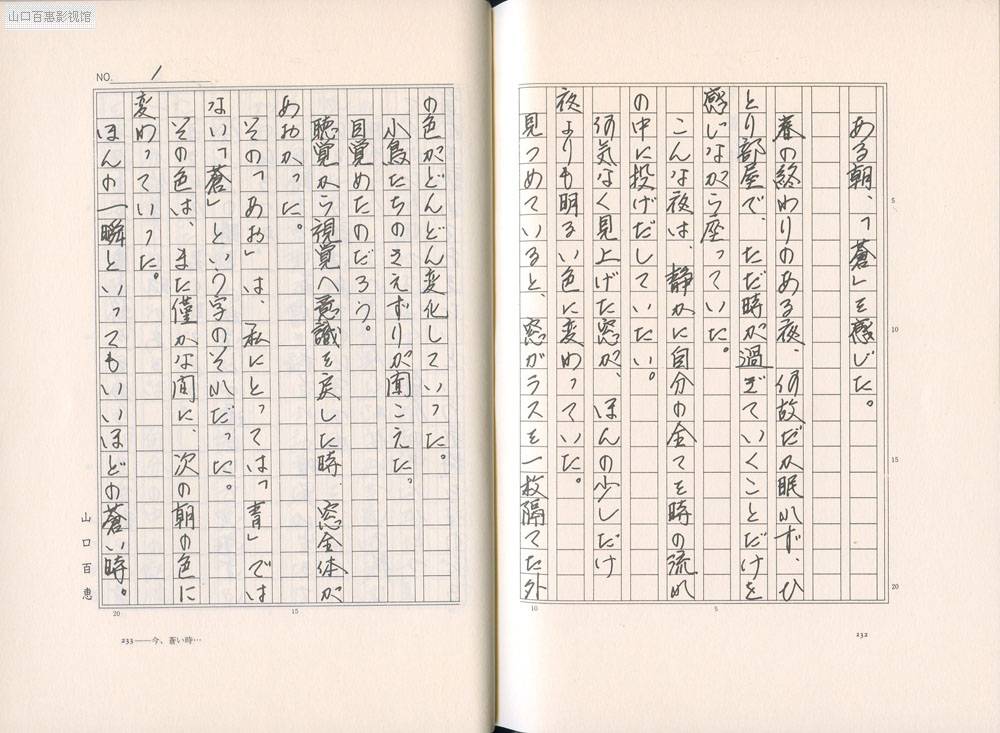 山口百惠影视馆
ある朝、「蒼」を感じた。
春の終わりのある夜、何故だか眠れず、ひ
とり部屋で、ただ時が過ぎていくことだけを
感じながら座っていた。
こんな夜は、静かに自分の全てを時の流れ
の中に投げだしていたい。
何気なく見上げた窓が、ほんの少しだけ
夜よりも明るい色に変わっていた。
見つめていると、窓ガラスを一枚隔てた外
5
10
15
20
5
10
232
NO. 1
の色がどんどん変化していった。
小鳥たちのさえずりが聞こえた。
目覚めたのだろう。
聴覚から視覚へ意識を戻した時、窓全体が
あおかった。
その「あお」は、私にとっては「青」では
ない「蒼」という字のそれだった。
その色は、また僅かな間に、次の朝の色に
変わっていった。
ほんの一瞬といってもいいほどの蒼い時。
山口百恵
15
20
233——今、蒼い時…